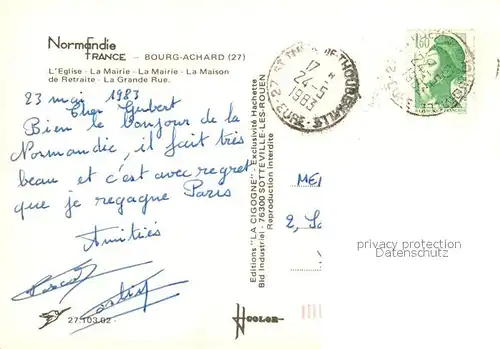 Normandie
FRANCE — BOURG-ACHARD (27)
L'Eglise - La Mairie - La Mairie - La Maison
de Retraite - La Grande Rue.
23 mai 1983
Cher
Bien le bonjour de la
Normandie, il fait très
beau et c'est avec regret
que je regagne Paris
Amitiés
Pascal
27.103.02 -
Editions "LA CIGOGNE" - Exclusivité Hachette
Bld Industriel - 76300 SOTTEVILLE-LES-ROUEN
Reproduction Interdite
COLOR
17 H
24-5
1983
EURE
1,60
2,
privacy protection
Datenschutz